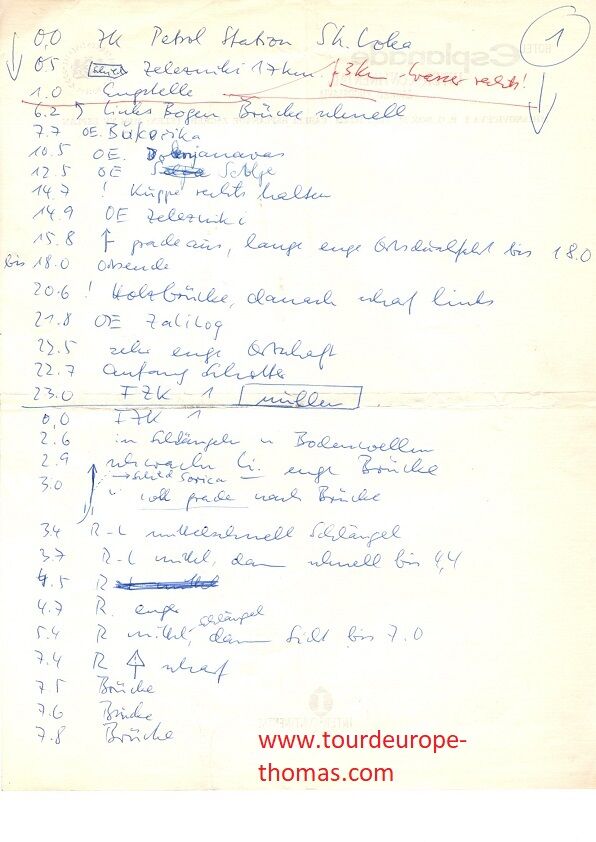 1
0,0 ZK Petrol Station Sk. Loka
0.5 Zelezniki 17km.
73km - Wasser rechts!
1.0 Engstelle
6.2 links Bogen Brücke schnell
7.7 OE. Bukovika
10.5 OE.
12.5 OE Selye
14.7 ! Kuppe rechts halten
14.9 OE Zelezniki
15.8 gradeaus, lange enge Ortsdurchfahrt bis 18.0
bis 18.0 Ortsende
20.6 ! Holzbrücke, danach scharf links
21.8 OE Zalilog
22.5 sehr enge Ortschaft
22.7 Anfang Schotter
23.0 FZK - 1
0,0 FZK 1
2.6 in Schlängeln u Bodenwellen
2.9 schwach li. enge Brücke
Schild Sorica
3.0 voll grade nach Brücke
3.4 R-L mittelschnell Schlängel
3.7 R-L mittel, dann schnell bis 4,4
4.5 R
4.7 R. enger
schlängel
5.4 R mittel, dann Sicht bis 7.0
7.4 R scharf
7.5 Brücke
7.6 Brücke
7.8 Brücke
www.tourdeurope-
thomas.com